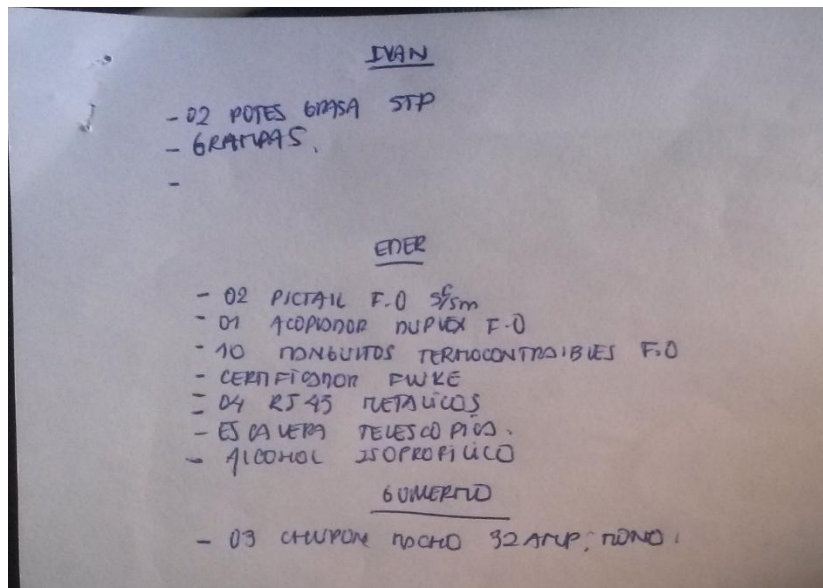 IVAN
- 02 POTES GRASA STP
- GRAMPAS.
-
EDER
- 02 PICTAIL F.O SC/SM
- 01 ACOPLADOR DUPLEX F.O
- 10 MANGUITOS TERMOCONTRAIBLES F.O
- CERTIFICADOR FLUKE
- 04 RJ45 METALICOS
- ESCALERA TELESCOPICA.
- ALCOHOL ISOPROPILICO
GUMERCIO
- 03 CHUPON MACHO 32 AMP. MONO.